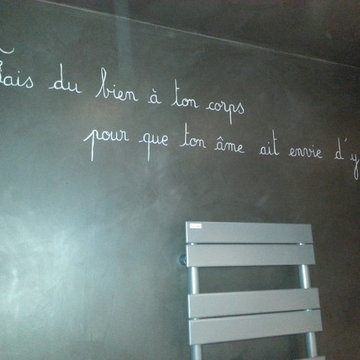 Fais du bien à ton corps
pour que ton âme ait envie d'y